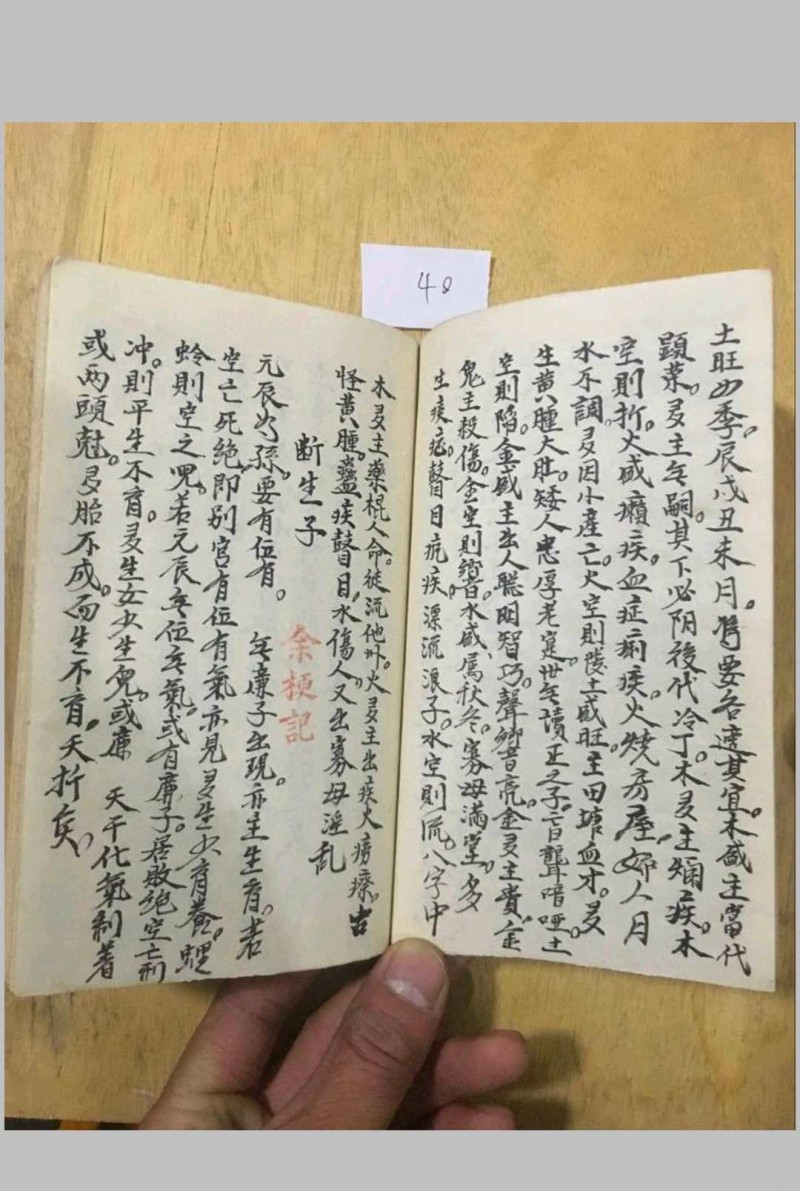 48
土旺四季。辰戌丑未月。将要各達其宜。木盛主當代
顕荣。多主无嗣。其下必阴後代冷丁。木多主爛疾。木
空則折。火盛癩疾。血症痢疾。火燒房屋。婦人月
水不調。多因小產亡。火空則陵。土盛旺主田塘血才。多
生黄腫大肚。矮人忠厚老寔。世无讀正之子。盲聾喑啞。土
空則陷。金盛主出人聪明智巧。聲响音亮。金多主貴。金
鬼主殺傷。金空則響。水盛属秋冬。寡母滿堂。多
生痰疤。瞽目疣疾。漂流浪子。水空則流。八字中
木多主藥棍人命。徒流他外。火多主出疾火癆瘵。古
怪黄腫。蠱疾瞽目。水傷人。又出寡母淫乱
断生子
余梗記
元辰为孫。要有位有。 无廉子出現。亦主生育。若
空亡死绝即别宫有位有氣亦見多生少育養。螟
蛉則空之児。若元辰无位无氣。或有廉子。居敗绝空亡刑
冲。則平生不育。多生女少生兒。或廉 天干化氣制着
或两頭尅。多胎不成。而生不育。夭折矣。